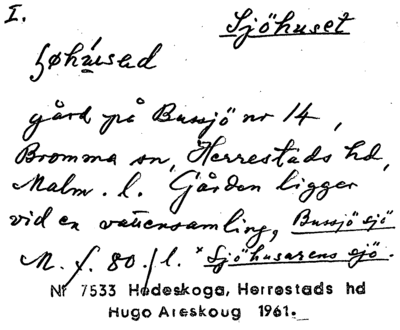 I.
Sjöhuset
gård på Bussjö nr 14,
Bromma sn, Herrestads hd,
Malm. l. Gården ligger
vid en vattensamling, Bussjö sjö
M. f. 80. / l. × Sjöhusarens sjö.
Nr 7533 Hedeskoga, Herrestads hd
Hugo Areskoug 1961.